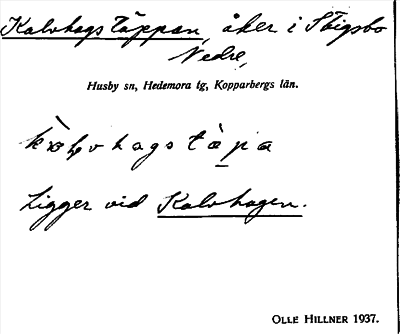 Kalvhags täppan, åker i Stigsbo
Nedre,
Husby sn, Hedemora tg, Kopparbergs län.
Ligger vid Kalvhagen.
OLLE HILLNER 1937.